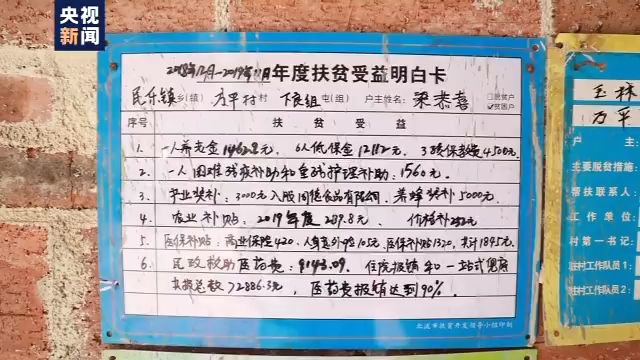 央视
新闻
2018年12月-2019年11月年度扶贫受益明白卡
民乐镇乡(镇) 方平村村 下良组屯(组) 户主姓名 梁恭喜 □脱贫户
☑贫困户
序号 扶贫受益
1. 一人养老金1462.8元, 6人低保金12112元 3
2. 一人困难残疾补助和重残护理补助:1560元.
3. 产业奖补:3000元入股 食品有限公司, 养蜂奖补5000元.
4. 农业补贴, 2019年度289.8元, 价格补252元
5. 医保补贴:商业保险420, 人身意外险105元, 医保补贴1320, 共计1845元.
6. 民政救助医药费:9143.09. 住院报销和一站式兜底
扶报总数72886.3元, 医药费报销达到90%.
北流市扶贫开发领导小组印制
玉林
万平
户主:
主要脱贫措施:
帮扶联系人:
工作单位:
村第一书记:
驻村工作队员1:
驻村工作队员2: